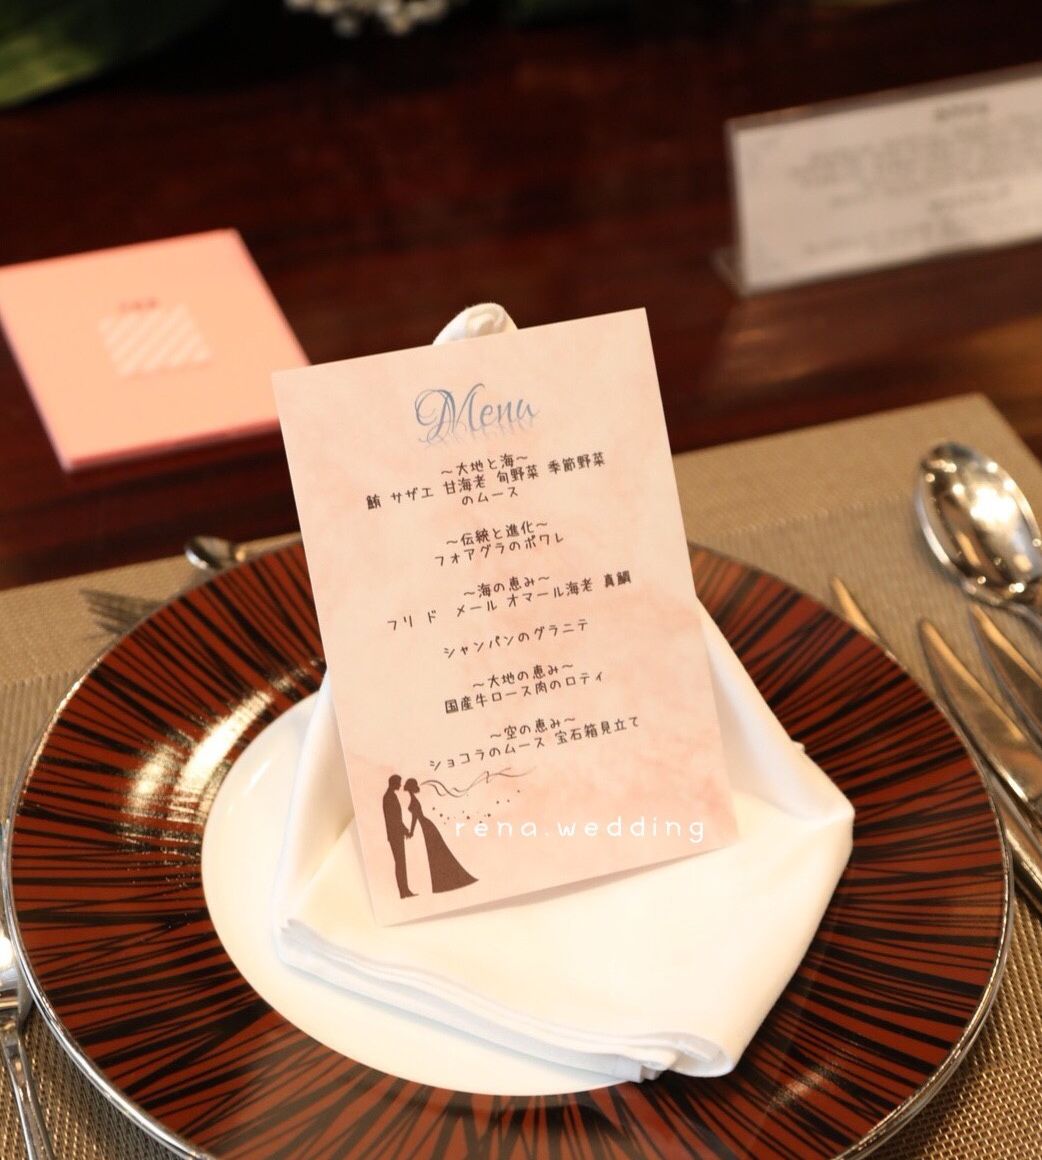 Menu
～大地と海～
鮪 サザエ 甘海老 旬野菜 季節野菜
のムース
～伝統と進化～
フォアグラのポワレ
～海の恵み～
フリ ド メール オマール海老 真鯛
シャンパンのグラニテ
～大地の恵み～
国産牛ロース肉のロティ
～空の恵み～
ショコラのムース 宝石箱見立て
rena.wedding